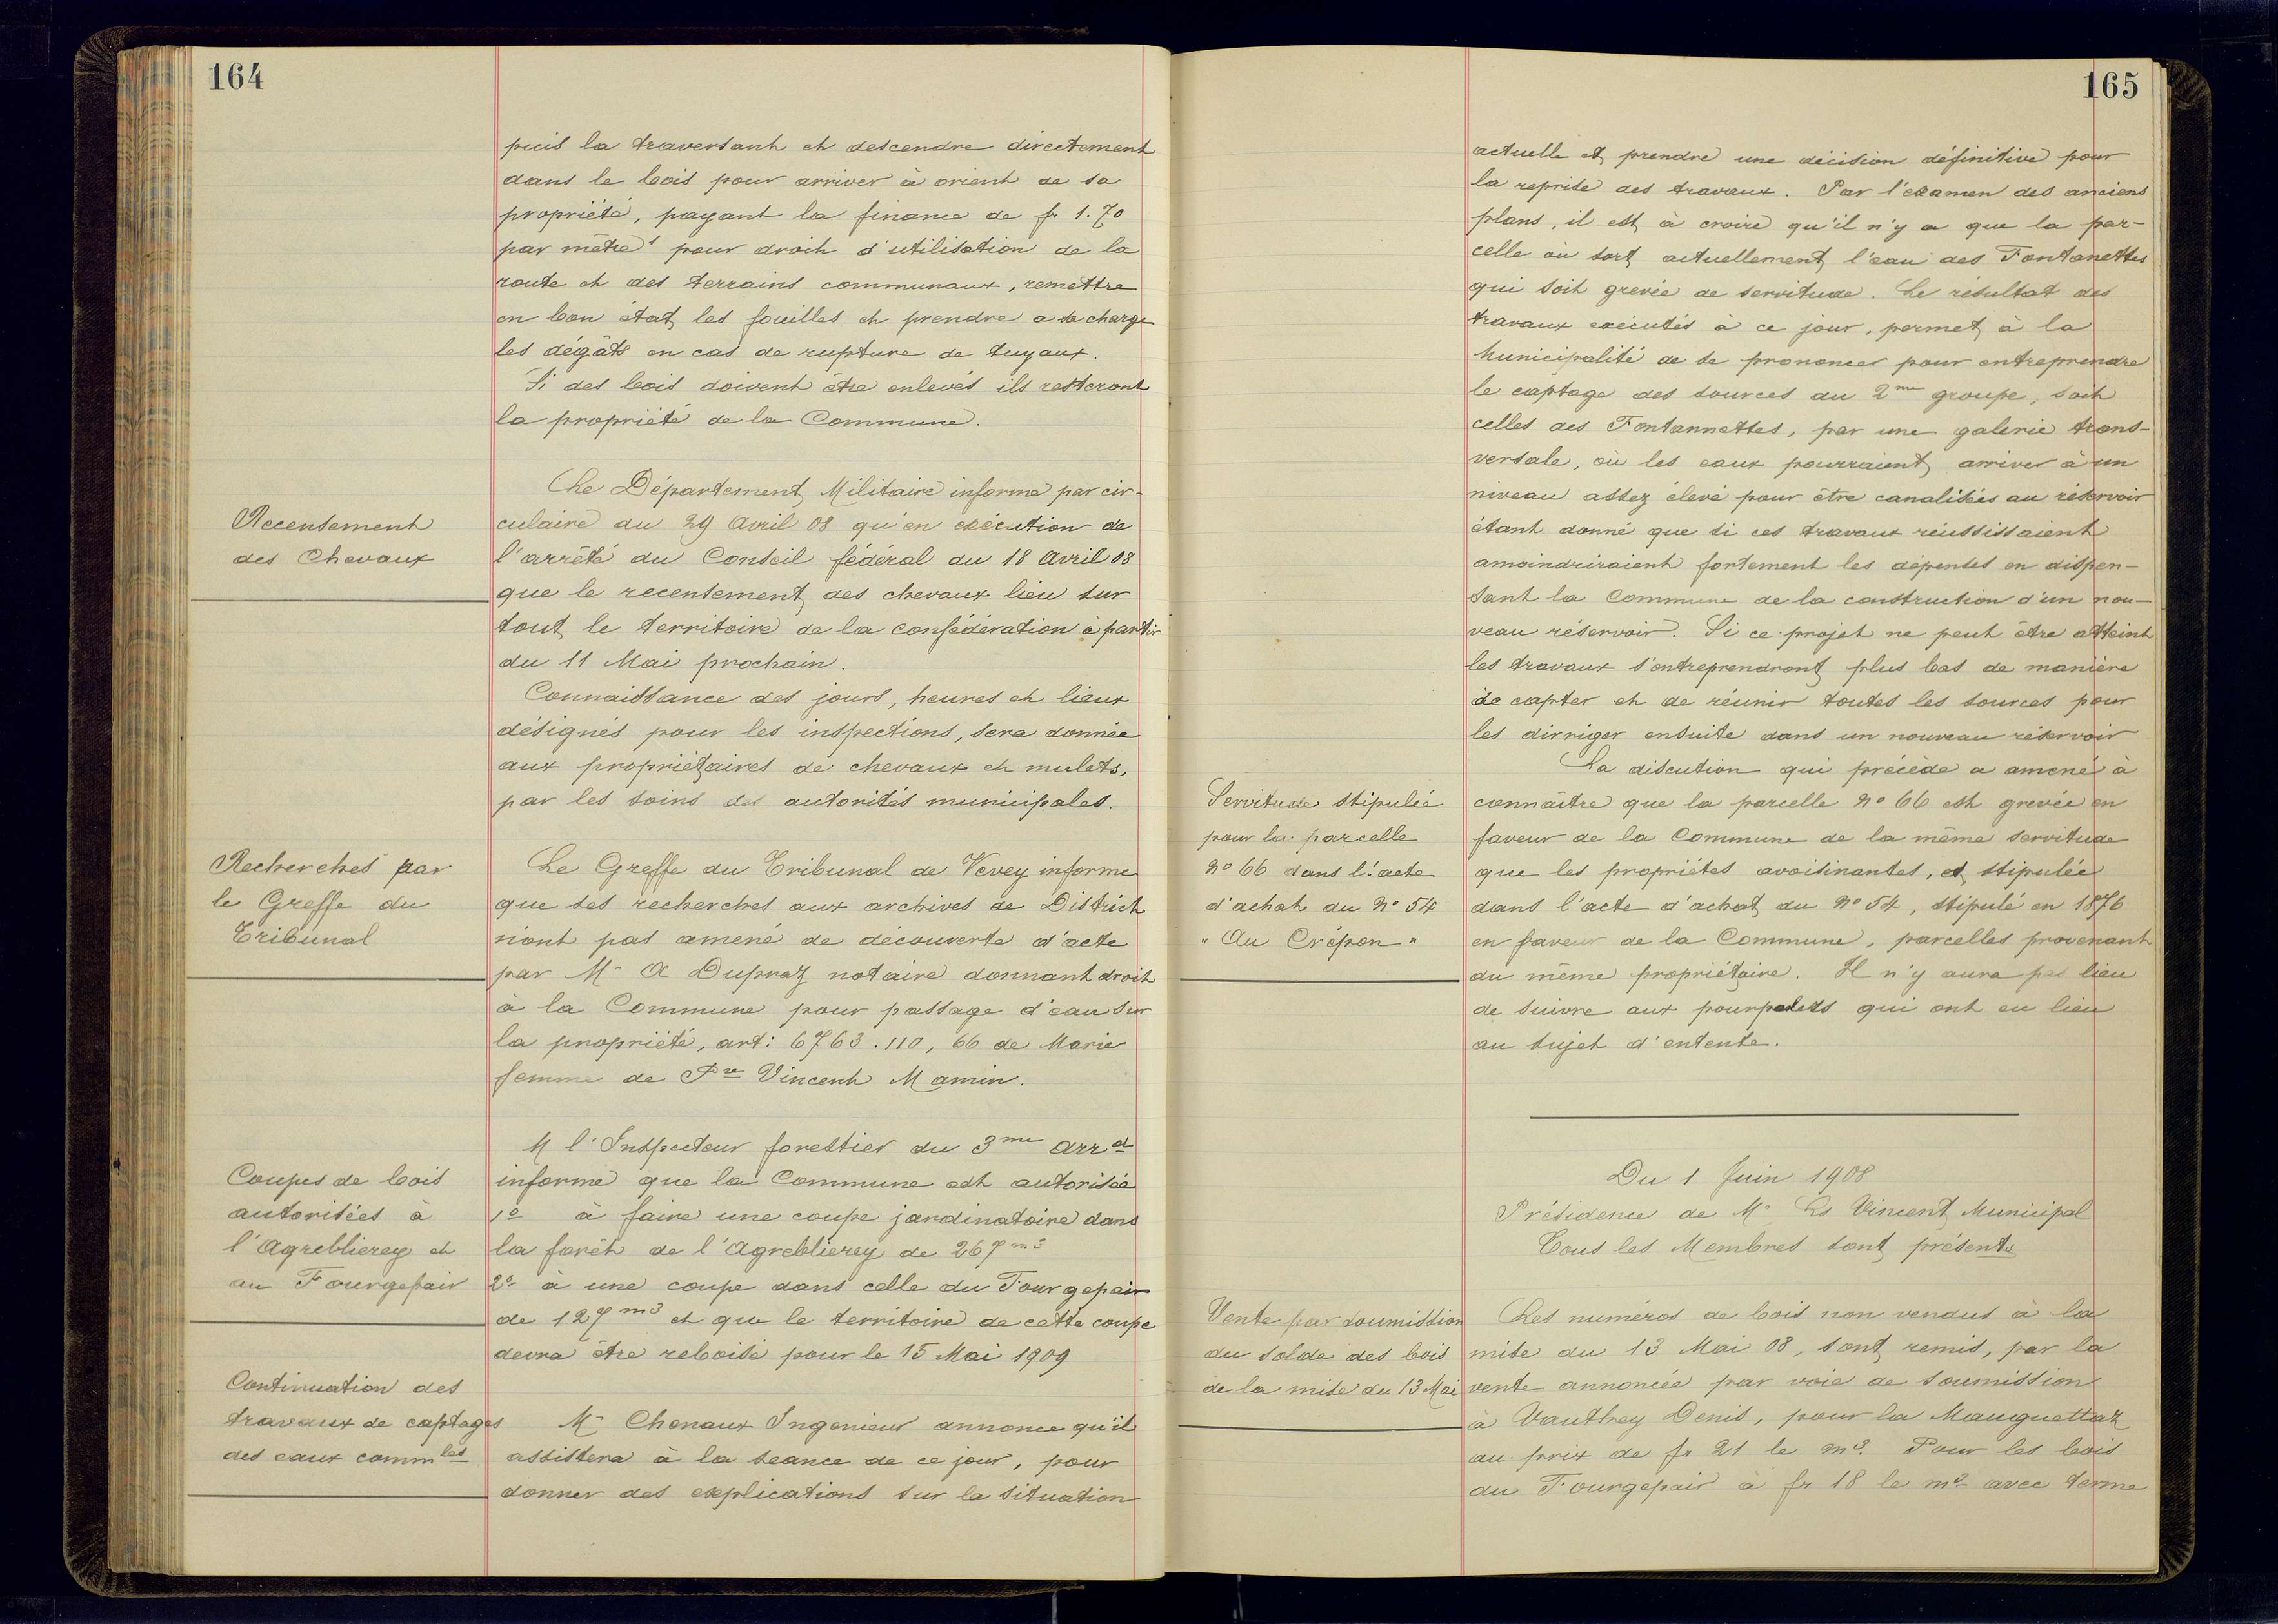 164
puis la traversant et descendre directement
dans le bois pour arriver à orient de sa
propriété, payant la finance de fr 1.70
par mètre¹ pour droit d'utilisation de la
route et des terrains communaux, remettre
en bon état les fouilles et prendre a sa charge
les dégâts en cas de rupture de tuyaux.
Si des bois doivent être enlevés ils resteront
la propriété de la Commune.
Recensement
des Chevaux
Le Département Militaire informe par cir-
culaire du 29 Avril 08 qu'en exécution de
l'arrêté du Conseil fédéral du 18 Avril 08
que le recensement des chevaux lieu sur
tout le territoire de la confédération à partir
du 11 Mai prochain.
Connaissance des jours, heures et lieux
désignés pour les inspections, sera donnée
aux propriétaires de chevaux et mulets,
par les soins des autorités municipales.
Recherches par
le Greffe du
Tribunal
Le Greffe du Tribunal de Vevey informe
que ses recherches aux archives de District
n'ont pas amené de découverte d'acte
par Mr A Dupraz notaire donnant droit
à la Commune pour passage d'eau sur
la propriété, art: 6763.110, 66 de Marie
femme de Pre Vincent Mamin.
Coupes de bois
autorisées à
l'Agreblierey et
au Fourgepair
M l'Inspecteur forestier du 3me Arrd
informe que la Commune est autorisée
1o à faire une coupe jardinatoire dans
la forêt de l'Agreblierey de 267 m3
2o à une coupe dans celle du Fourgepair
de 127 m3 et que le territoire de cette coupe
devra être reboisé pour le 15 Mai 1909
Continuation des
travaux de captages
des eaux commles
Mr Chenaux Ingenieur annonce qu'il
assistera à la seance de ce jour, pour
donner des explications sur la situation
165
actuelle et prendre une décision définitive pour
la reprise des travaux. Par l'examen des anciens
plans, il est à croire qu'il n'y a que la par-
celle où sort actuellement l'eau des Fontanettes
qui soit grevée de servitude. Le résultat des
travaux exécutés à ce jour, permet à la
Municipalité de se prononcer pour entreprendre
le captage des sources du 2me groupe, soit
celles des Fontannettes, par une galerie trans-
versale, où les eaux pourraient arriver à un
niveau assez élevé pour être canalisées au réservoir
étant donné que si ces travaux réussissaient
amoindriraient fortement les dépenses en dispen-
sant la Commune de la construction d'un nou-
veau réservoir. Si ce projet ne peut être atteint
les travaux s'entreprendront plus bas de manière
de capter et de réunir toutes les sources pour
les dirriger ensuite dans un nouveau réservoir
Servitude stipulée
pour la parcelle
No 66 dans l'acte
d'achat du No 54
"Au Crépon"
La discution qui précède a amené à
connaître que la parcelle No 66 est grevée en
faveur de la Commune de la même servitude
que les propriétes avoisinantes, et stipulée
dans l'acte d'achat du No 54, stipulé en 1876
en faveur de la Commune, parcelles provenant
du même propriétaire. Il n'y aura pas lieu
de suivre aux pourpalers qui ont eu lieu
au sujet d'entente.
Du 1 Juin 1908
Présidence de Mr Ls Vincent Municipal
Tous les Membres sont présents
Vente par soumission
du solde des bois
de la mise du 13 Mai
Les numéros de bois non vendus à la
mise du 13 Mai 08, sont remis, par la
vente annoncée par voie de soumission
à Vauthey Denis, pour la Mauguettaz
au prix de fr 21 le m3. Pour les bois
du Fourgepair à fr 18 le m3 avec terme